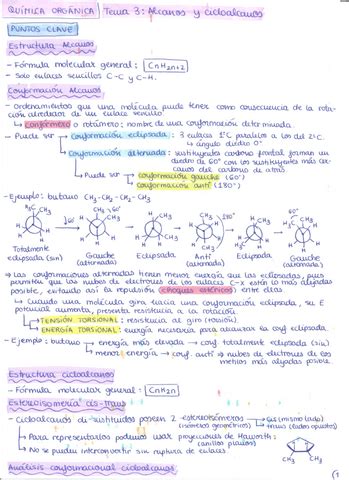 QUÍMICA ORGÁNICA | Tema 3: Alcanos y cicloalcanos
PUNTOS CLAVE
Estructura Alcanos
- Fórmula molecular general: CnH2n+2
- Solo enlaces sencillos C-C y C-H.
Conformación Alcanos
- Ordenamientos que una molécula puede tener como consecuencia de la rota-
ción alrededor de un enlace sencillo.
↳ Confórmero o rotámero: nombre de una conformación determinada
- Puede ser → conformación eclipsada: 3 enlaces 1ºC paralelos a los del 2ºC.
↳ ángulo diedro 0º
↳ Conformación alternada: sustituyentes carbono frontal forman un
diedro de 60º con los sustituyentes más cer-
canos del carbono de atrás
↳ Puede ser → conformación gauche (60º)
↳ conformación anti (180º)
- Ejemplo: butano CH3-CH2-CH2-CH3
H3C CH3 60º CH3 CH3 CH3 180º CH3 60º
H H H H H H
Totalmente eclipsada (sin)
Gauche (alternada)
Eclipsada
Anti (alternada)
Eclipsada
Gauche (alternada)
⇒ Las conformaciones alternadas tienen menos energía que las eclipsadas, pues
permiten que las nubes de electrones de los enlaces C-X estén lo más alejadas
posible, evitando así la repulsión (choques estéricos) entre ellas
↳ Cuando una molécula gira hacia una conformación eclipsada, su E
potencial aumenta, presenta resistencia a la rotación.
↳ TENSIÓN TORSIONAL: resistencia al giro (torsión)
↳ ENERGÍA TORSIONAL: energía necesaria para alcanzar la conf eclipsada
- Ejemplo: butano → energía más elevada → conf totalmente eclipsada (sin)
↳ menos energía → conf. anti ⇒ nubes de electrones de los
metilos más alejadas posible.
Estructura cicloalcanos
- Fórmula molecular general: CnH2n
Estereoisomería cis-trans
- Cicloalcanos di sustituidos poseen 2 estereoisómeros → cis (mismo lado)
(isómeros geométricos) ↳ trans (lados opuestos)
↳ Para representarlos podemos usar proyecciones de Haworth:
(anillos planos)
↳ No se pueden interconvertir sin ruptura de enlaces
Análisis conformacional cicloalcanos